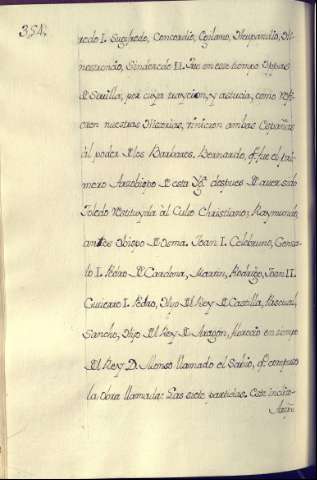 354.
redo I. Sugifredo, Concordio, Cyxlamo, Neupandio, Di-
nestiondo, Sinderedo II. Fue en este tiempo Oppas
de Sevilla, por cuya traycion, y astucia, como refi-
eren nuestras Historias, vinieron ambas Españas
àl poder de los Barbaros. Bernardo, q.e fue el pri-
mero Arzobispo de esta Yg.a despues de aver sido
Toledo restituyda àl Culto Christiano; Raymundo,
antes Obispo de Osma. Joan I. Celebruno, Gonsa-
lo I. Pedro de Cardona, Martin, Rodrigo, Joan II.
Gutierre I. Pedro, Hijo del Rey de Castilla, Pascual,
Sancho, Hijo del Rey de Aragon, Mercào en tiempo
del Rey D. Alonso llamado el Sabio, q.e compuso
la Obra llamada: Las siete partidas. Este incli[...]